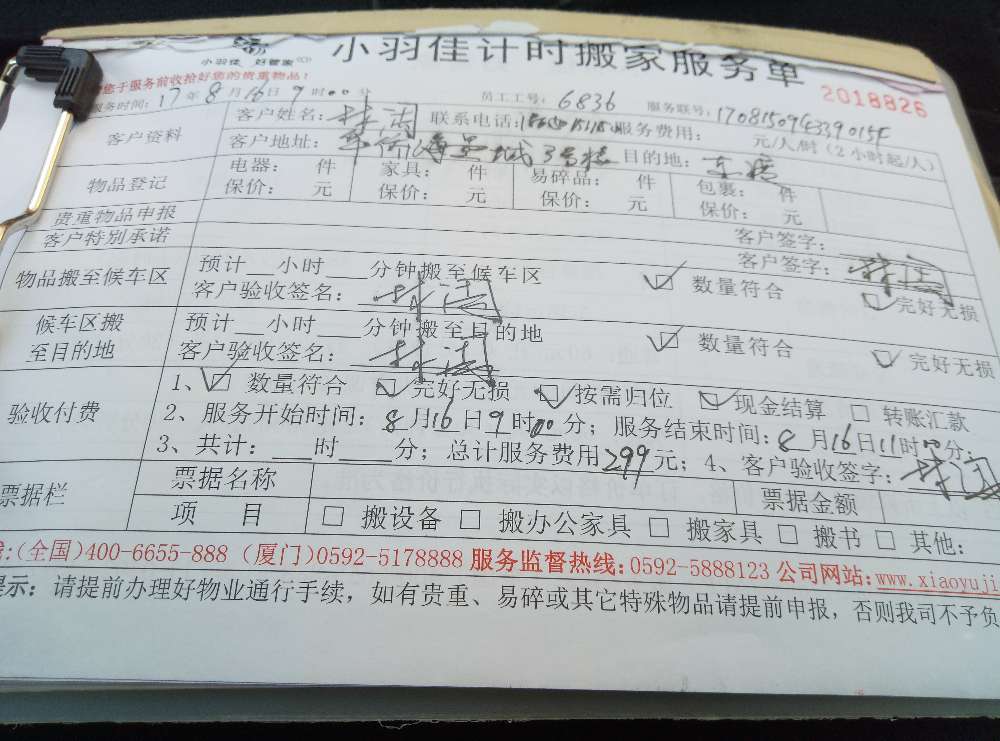 小羽佳计时搬家服务单
小羽佳 好管家
您于服务前收拾好您的贵重物品!
2018826
服务时间: 17年8月16日9时00分 员工工号: 6836 服务联号:
客户资料
客户姓名: 联系电话: 服务费用: 元/人/时(2小时起/人)
客户地址: 海景城3号楼 目的地:
物品登记
电器: 件 家具: 件 易碎品: 件 包裹: 件
保价: 元 保价: 元 保价: 元 保价: 元
贵重物品申报 客户签字:
客户特别承诺 客户签字:
物品搬至候车区
预计__小时___分钟搬至候车区 ☑ 数量符合 ☑ 完好无损
客户验收签名:
候车区搬
至目的地
预计__小时___分钟搬至目的地 ☑ 数量符合 ☑ 完好无损
客户验收签名:
验收付费
1、☑ 数量符合 ☑ 完好无损 ☑ 按需归位 ☑ 现金结算 □ 转账汇款
2、服务开始时间: 8月16日9时00分; 服务结束时间: 8月16日11时00分;
3、共计: ___时___分; 总计服务费用299元; 4、客户验收签字:
票据栏
票据名称 票据金额
项 目 □ 搬设备 □ 搬办公家具 □ 搬家具 □ 搬书 □ 其他:
:(全国)400-6655-888 (厦门)0592-5178888 服务监督热线:0592-5888123 公司网站:www.xiaoyuji
示: 请提前办理好物业通行手续, 如有贵重、易碎或其它特殊物品请提前申报, 否则我司不予负